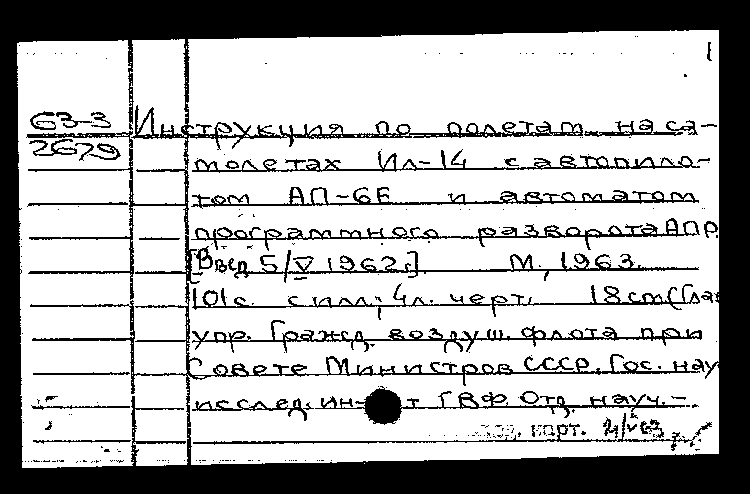 63-3
2679
Инструкция по полетам на са-
молетах Ил-14 с автопило-
том АП-6Е и автоматом
программного разворота АПР.
[Введ. 5/V 1962 г.] М., 1963.
101 с. с илл.; 4 л. черт. 18 cm (Глав
упр. Гражд. воздуш. флота при
Совете Министров СССР. Гос. науч
исслед. ин-т ГВФ. Отд. науч.-
корт.